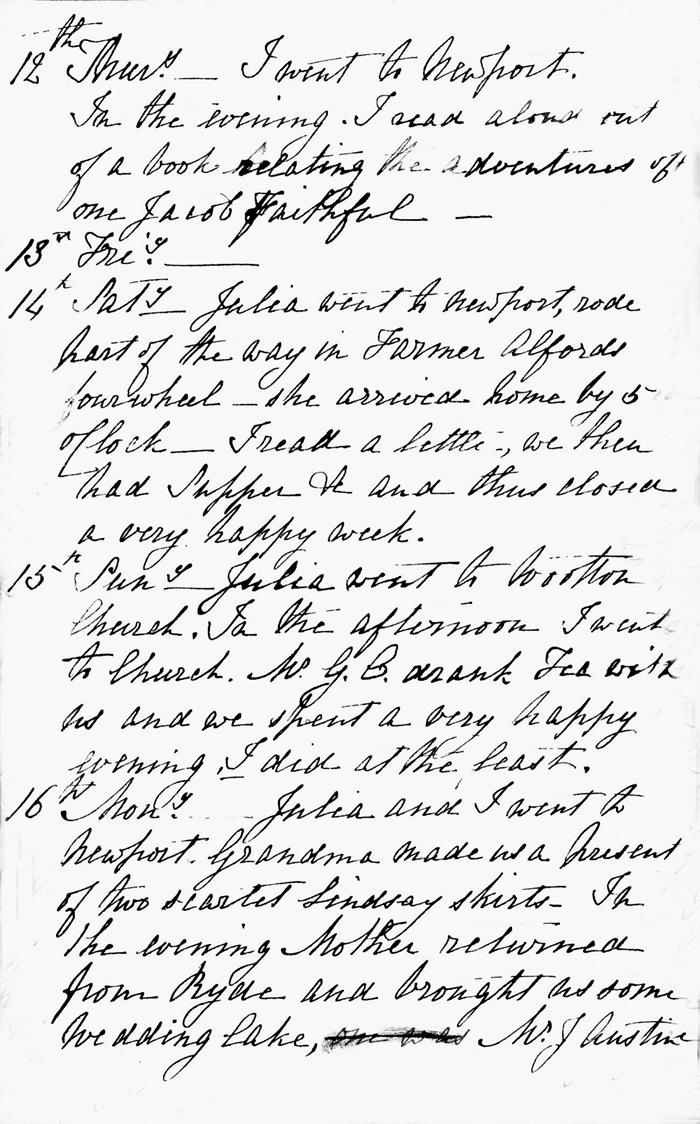 12th Thurs.y — I went to Newport.
In the evening. I read aloud out
of a book relating the adventures of
one Jacob Faithful —
13th Fri.y ———
14th Sat.y — Julia went to Newport, rode
part of the way in Farmer Alfords
fourwheel — she arrived home by 5
o'Clock — I read a little -, we then
had Supper &c and thus closed
a very happy week.
15th Sun.y — Julia went to Wootton
Church. In the afternoon I went
to Church. Mr G. C. drank Tea with
us and we spent a very happy
evening, I did at the least.
16th Mon.y Julia and I went to
Newport. Grandma made us a present
of two scarlet Lindsay skirts — In
the evening Mother returned
from Ryde and brought us some
Wedding Cake, one was Mr. J Austin